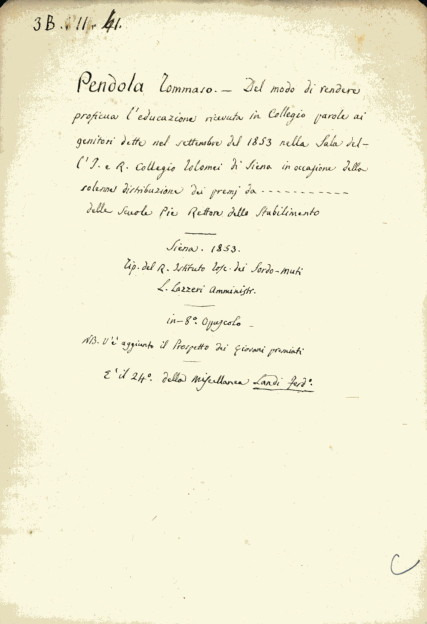 3B. 11. 41.
Pendola Tommaso. — Del modo di rendere
proficua l'educazione ricevuta in Collegio parole ai
genitori dette nel settembre del 1853 nella Sala del-
l'I. e R. Collegio Tolomei di Siena in occasione della
solenne distribuzione dei premj da - - - - - - - - - - -
delle Scuole Pie Rettore dello Stabilimento
Siena. 1853.
Tip. del R. Istituto Tosc. dei Sordo-muti
L. Lazzeri Amministr.
in-8° Opuscolo
NB. V'è aggiunto il Prospetto dei Giovani premiati
E' il 24° della Miscellanea Landi Ferdo.